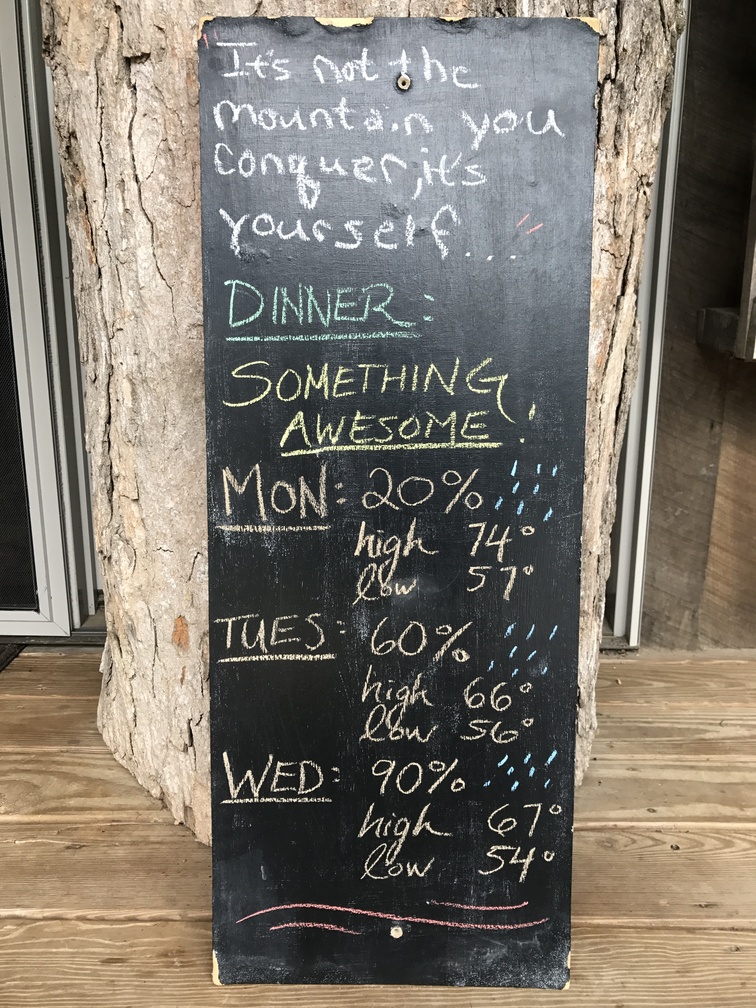 "It's not the
mountain you
conquer, it's
yourself..."
DINNER:
SOMETHING
AWESOME!
MON: 20%
high 74°
low 57°
TUES: 60%
high 66°
low 56°
WED: 90%
high 67°
low 54°